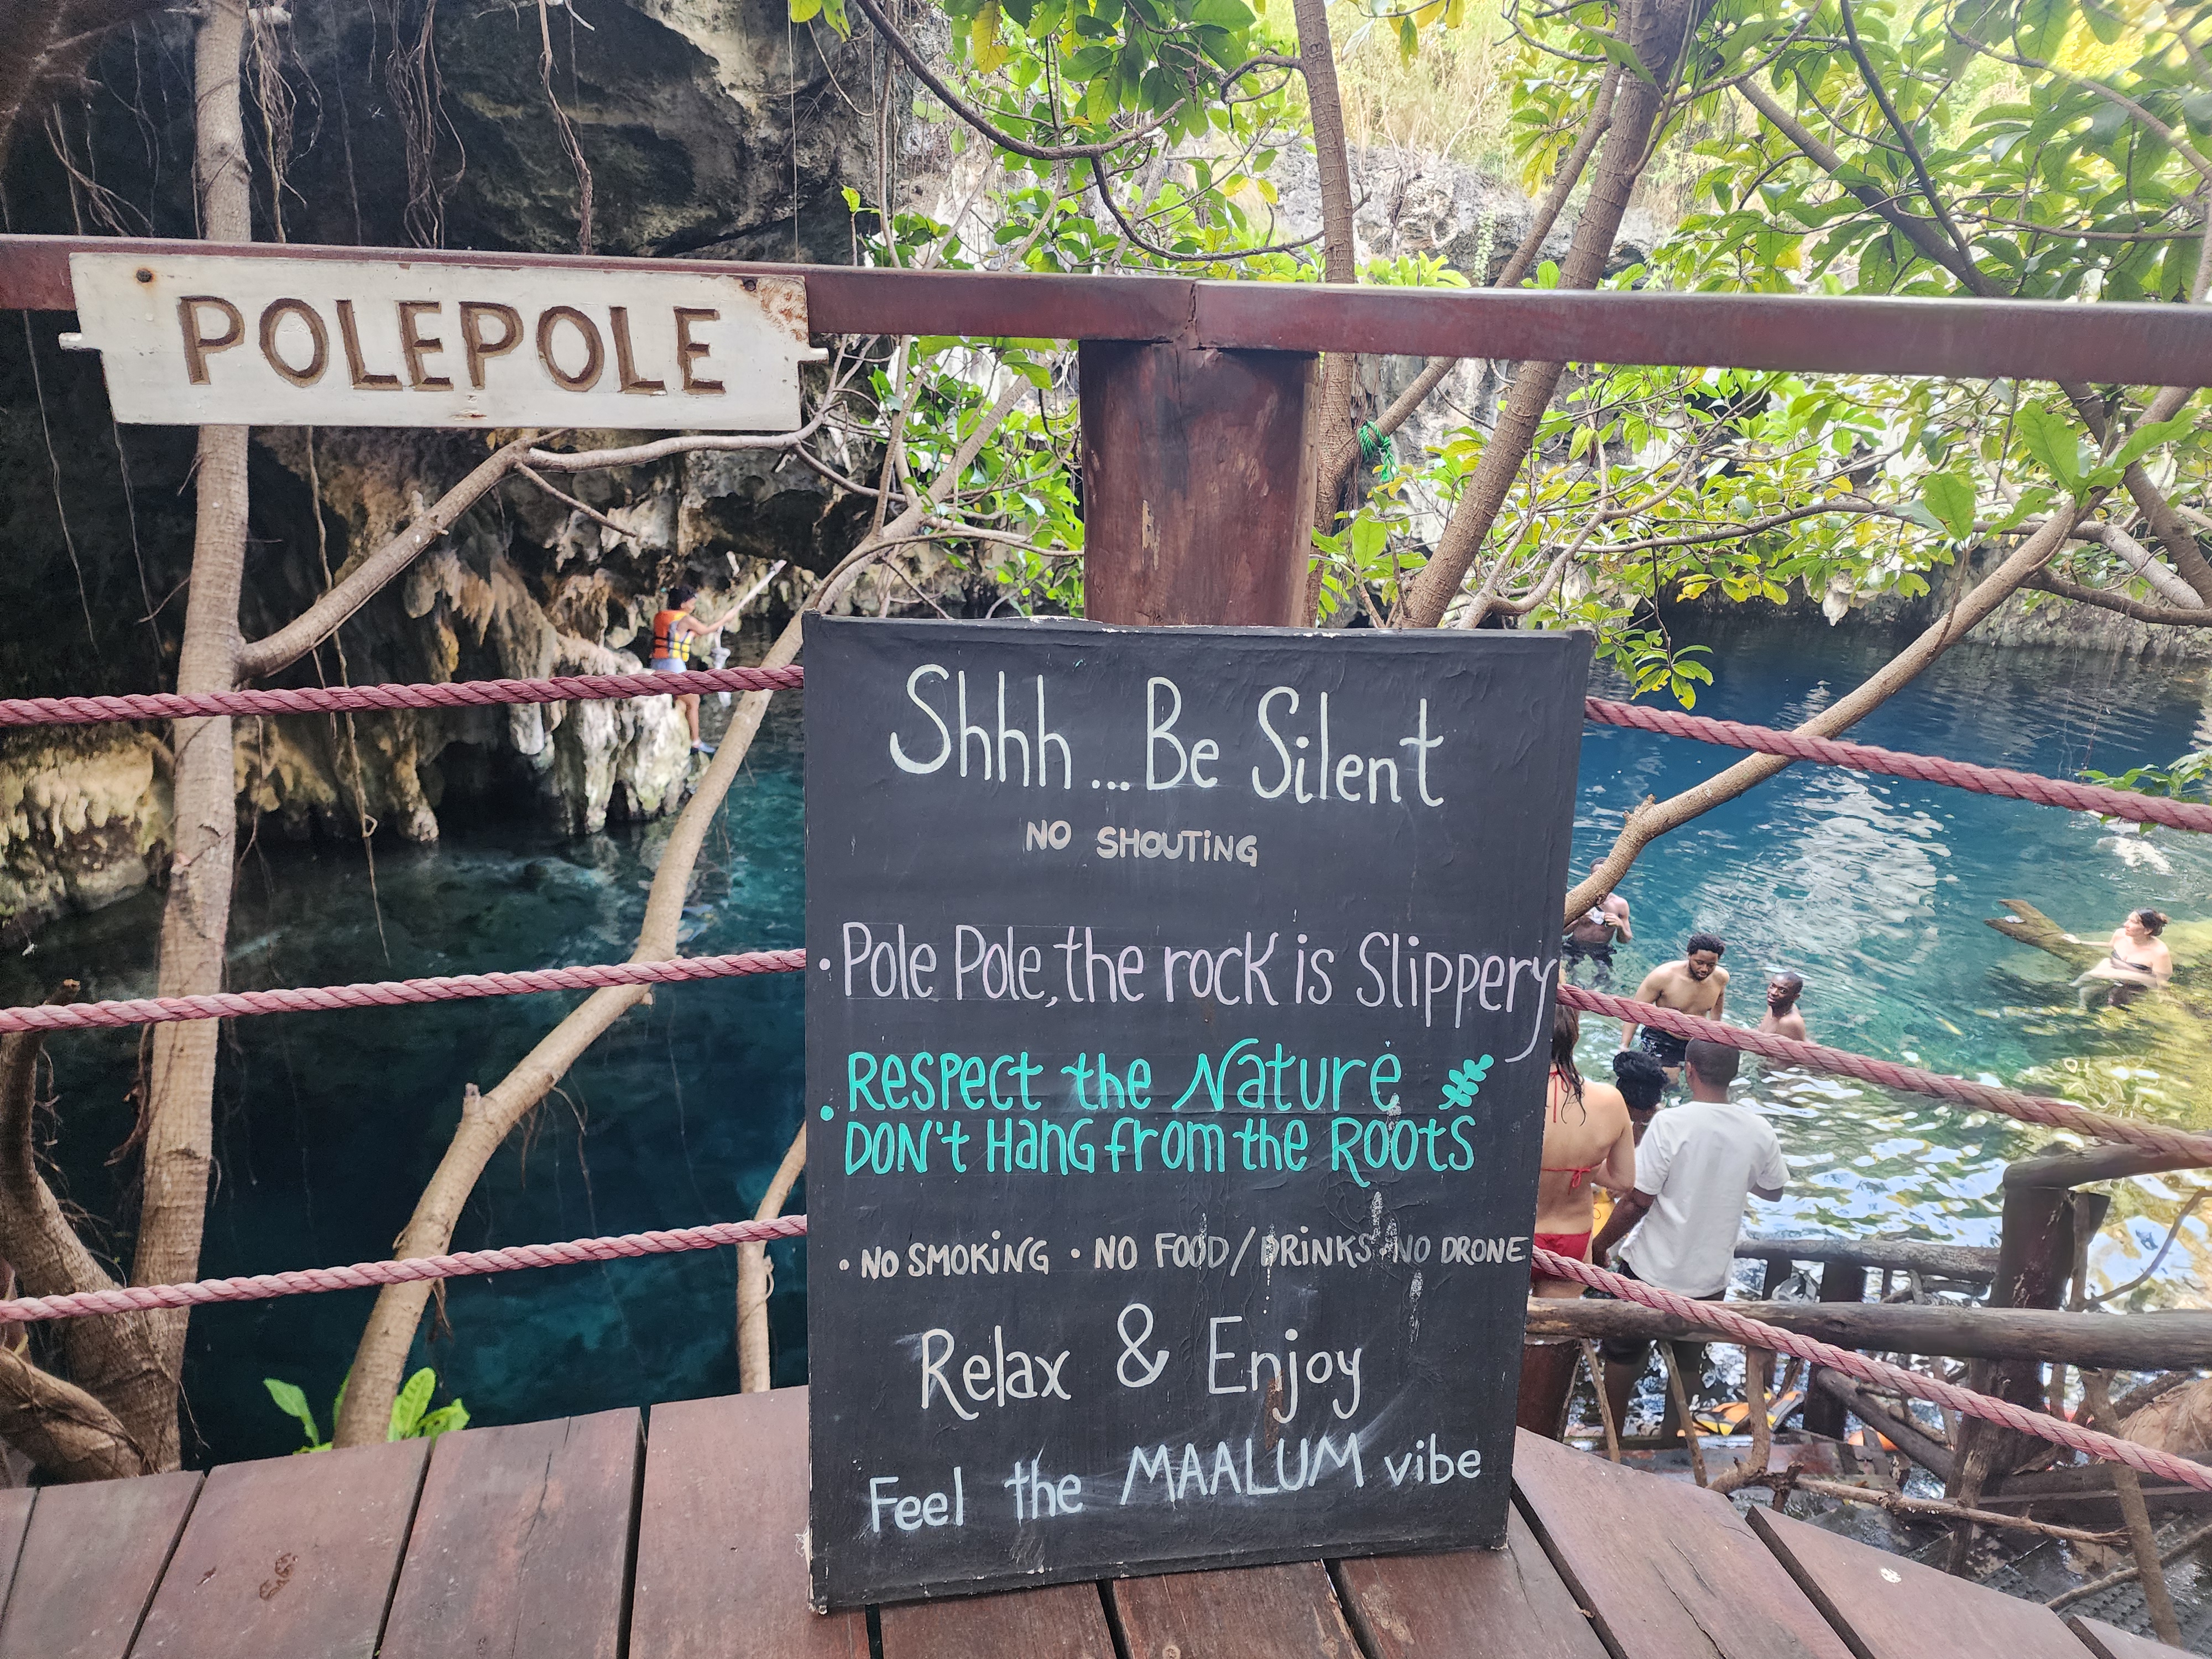 POLEPOLE
Shhh... Be Silent
NO SHOUTiNG
• Pole Pole, the rock is Slippery
• RESPECT the Nature
DON't HanG from the ROOTS
• NO SMOKiNG • NO FOOD/DRiNKS • NO DRONE
Relax & Enjoy
Feel the MAALUM vibe